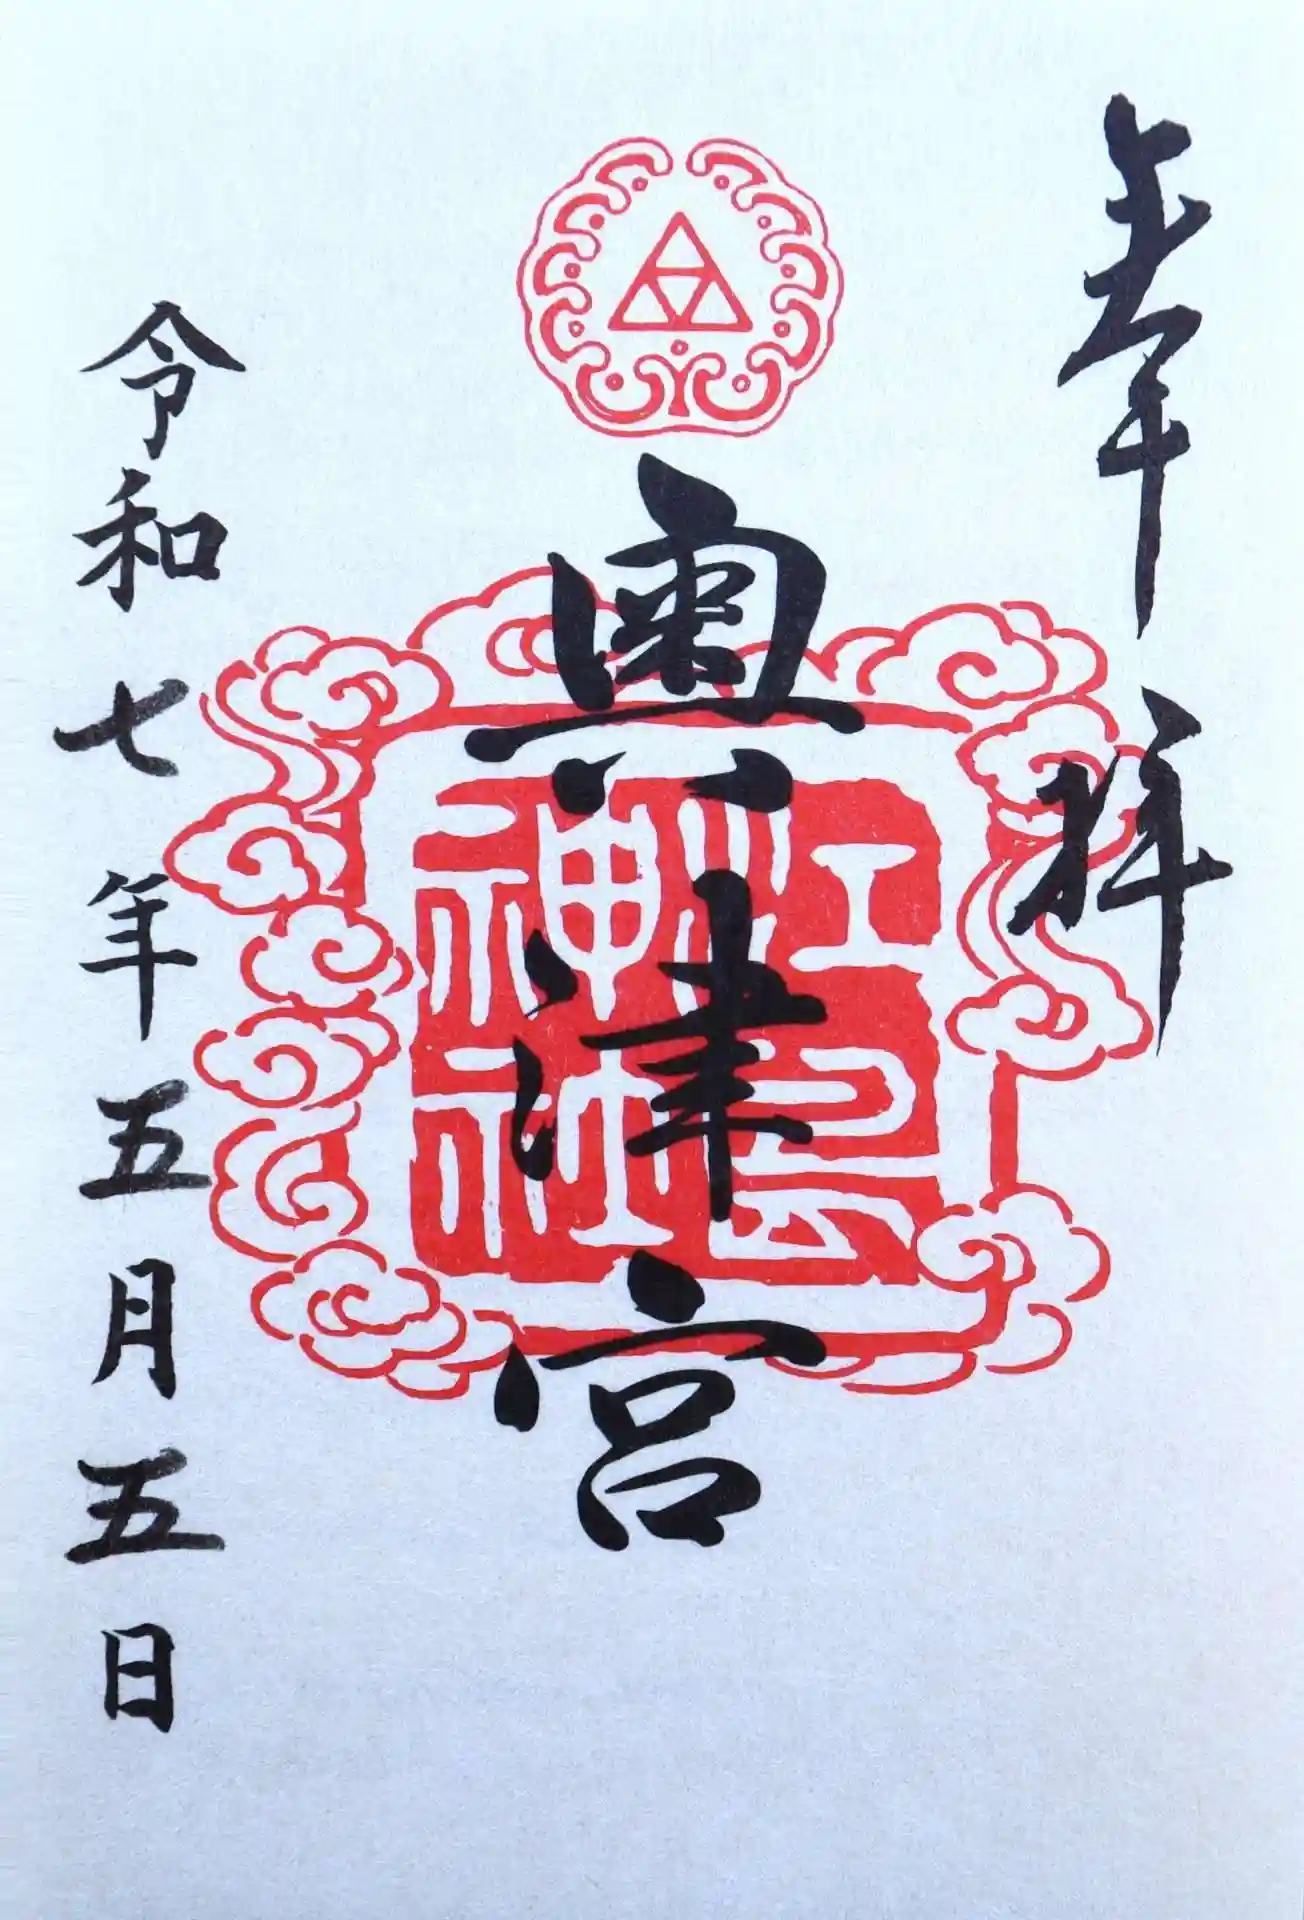 奉拝
奧津宮
江島神社
令和七年五月五日